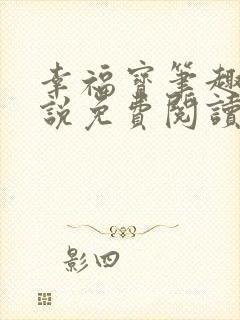 幸福寶筆趣
說免費閱讀
影四